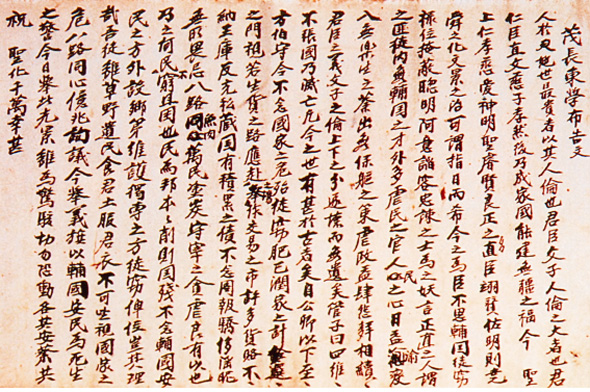 茂長東學布告文
人於世最貴者以其人倫也君臣父子人倫之大者也君
仁臣直父慈子孝然後乃成家國能建無疆之福今 聖
上仁孝慈愛神明聖睿賢良正之直臣翊贊佐明則堯
舜之化文景之治可謂指日而希今之爲臣不思輔國徒窃
祿位掩蔽聰明阿意諂容忠諫之士爲之妖言正直之人謂
之匪徒內無輔國之才外多虐民之官人民之心日益渝變
入無樂生之業出無保軀之策虐政益肆怨聲相續
君臣之義父子之倫上下之分遂壞而無遺矣管子曰四維
不張國乃滅亡方今之世有甚於古者矣自公卿以下至
方伯守令不念國家之危殆徒窃肥己潤家之計銓選
之門視若生貨之路應赴交易之市許多貨賂不
納王庫反充私藏國有積累之債不念圖報驕侈淫昵
無所畏忌八路魚肉萬民塗炭守宰之貪虐良有以也
乃之何民窮且困也民爲邦本削則國殘不念輔國安
民之方外設鄕第惟獨專之方徒窃俸位豈其理
哉吾徒雖草野遺民食君土服君衣不可坐視國家之
危八路同心億兆詢議今擧義旗以輔國安民爲死生
之誓今日擧光景雖爲驚駭切勿恐動各共安業共
祝 聖化千萬幸甚